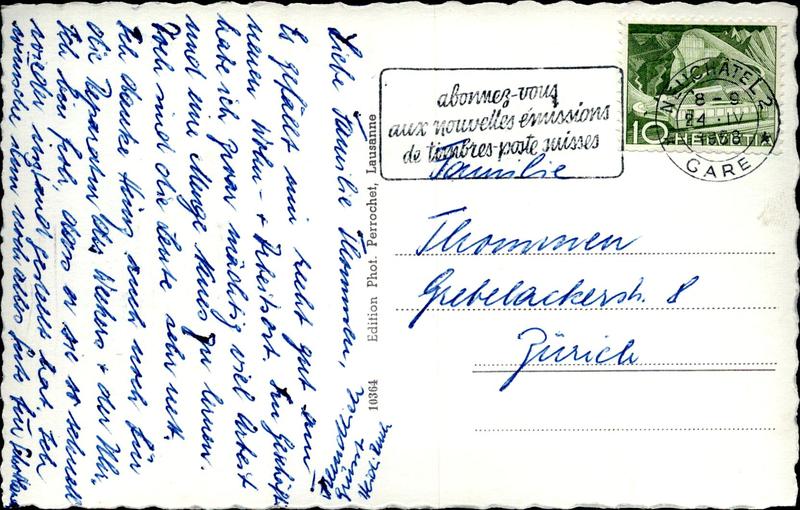 Liebe Familie Thommen,
Es gefällt mir recht gut am
neuen Wohn- + Arbeitsort. Im Geschäft
habe ich zwar mächtig viel Arbeit
und eine Menge Neues zu lernen.
Doch sind die Leute sehr nett.
Ich danke Ihnen auch noch für
die Reparatur des Weckers + der Uhr.
Ich bin froh, dass er sie so schnell
wieder instand gestellt hat. Ich
wünsche Ihnen noch alles Gute für
Freundlich
grüsst
Heidi
10364 Edition Phot. Perrochet, Lausanne
abonnez-vous
aux nouvelles émissions
de timbres-poste suisses
NEUCHÂTEL 2
8-9
24. IV.
1958
GARE
10 HELVETIA
Familie
Thommen
Grebelackerstr. 8
Zürich